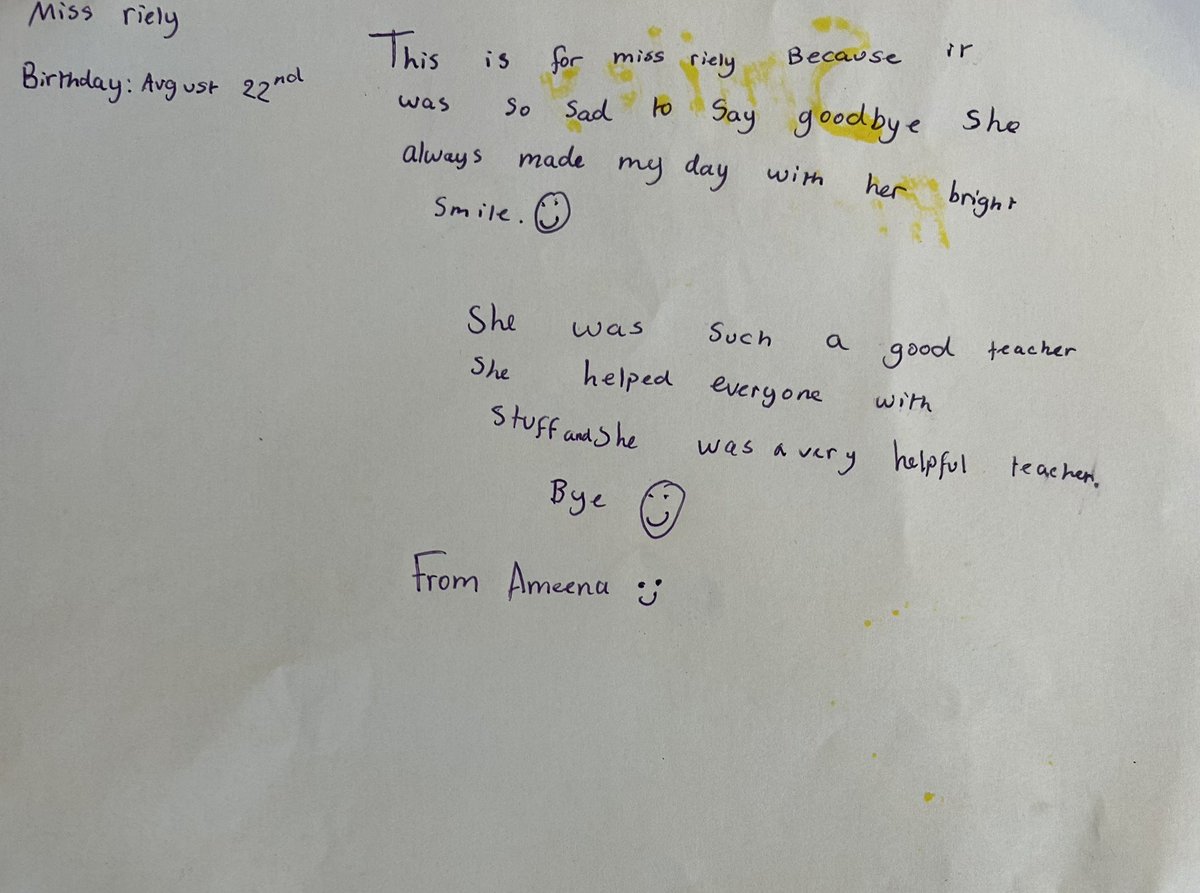 Miss riely
Birthday: August 22nd
This is for miss riely Because it
was so sad to say goodbye She
always made my day with her bright
Smile. ☺
She was such a good teacher
She helped everyone with
stuff and She was a very helpful teacher.
Bye ☺
From Ameena ☺